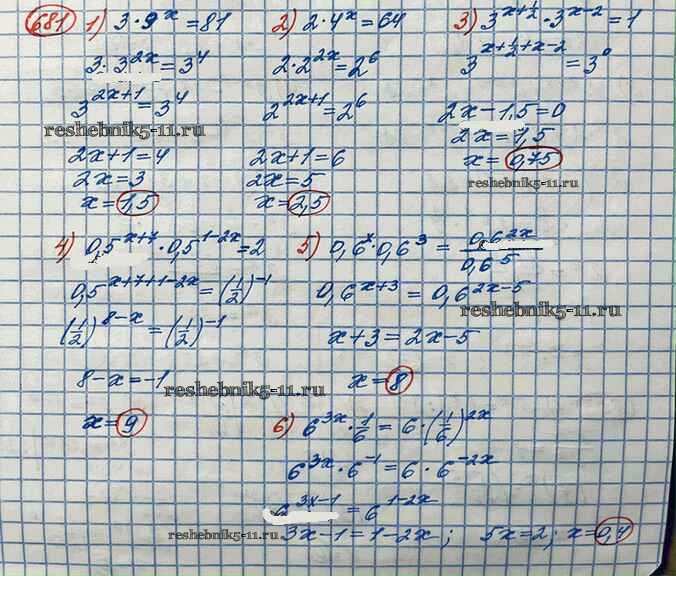 681 1) 3·9^x = 81
3·3^{2x} = 3^4
3^{2x+1} = 3^4
reshebnik5-11.ru
2x+1 = 4
2x = 3
x = 1,5
2) 2·4^x = 64
2·2^{2x} = 2^6
2^{2x+1} = 2^6
2x+1 = 6
2x = 5
x = 2,5
3) 3^{x+\frac{1}{2}}·3^{x-2} = 1
3^{x+\frac{1}{2}+x-2} = 3^0
2x-1,5 = 0
2x = 1,5
x = 0,75
reshebnik5-11.ru
4) 0,5^{x+7}·0,5^{1-2x} = 2
0,5^{x+7+1-2x} = (\frac{1}{2})^{-1}
(\frac{1}{2})^{8-x} = (\frac{1}{2})^{-1}
8-x = -1
reshebnik5-11.ru
x = 9
5) 0,6^x·0,6^3 = \frac{0,6^{2x}}{0,6^5}
0,6^{x+3} = 0,6^{2x-5}
reshebnik5-11.ru
x+3 = 2x-5
x = 8
6) 6^{3x}·\frac{1}{6} = 6·(\frac{1}{6})^{2x}
6^{3x}·6^{-1} = 6·6^{-2x}
6^{3x-1} = 6^{1-2x}
reshebnik5-11.ru
3x-1 = 1-2x; 5x = 2; x = 0,4